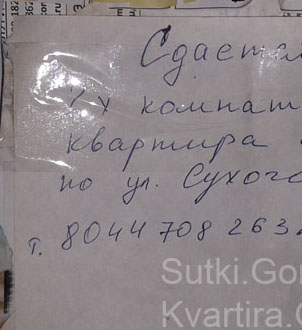 Сдается
4х комнат
квартира
по ул. Сухого
т. 8044 708 263
Sutki.Gom
Kvartira.